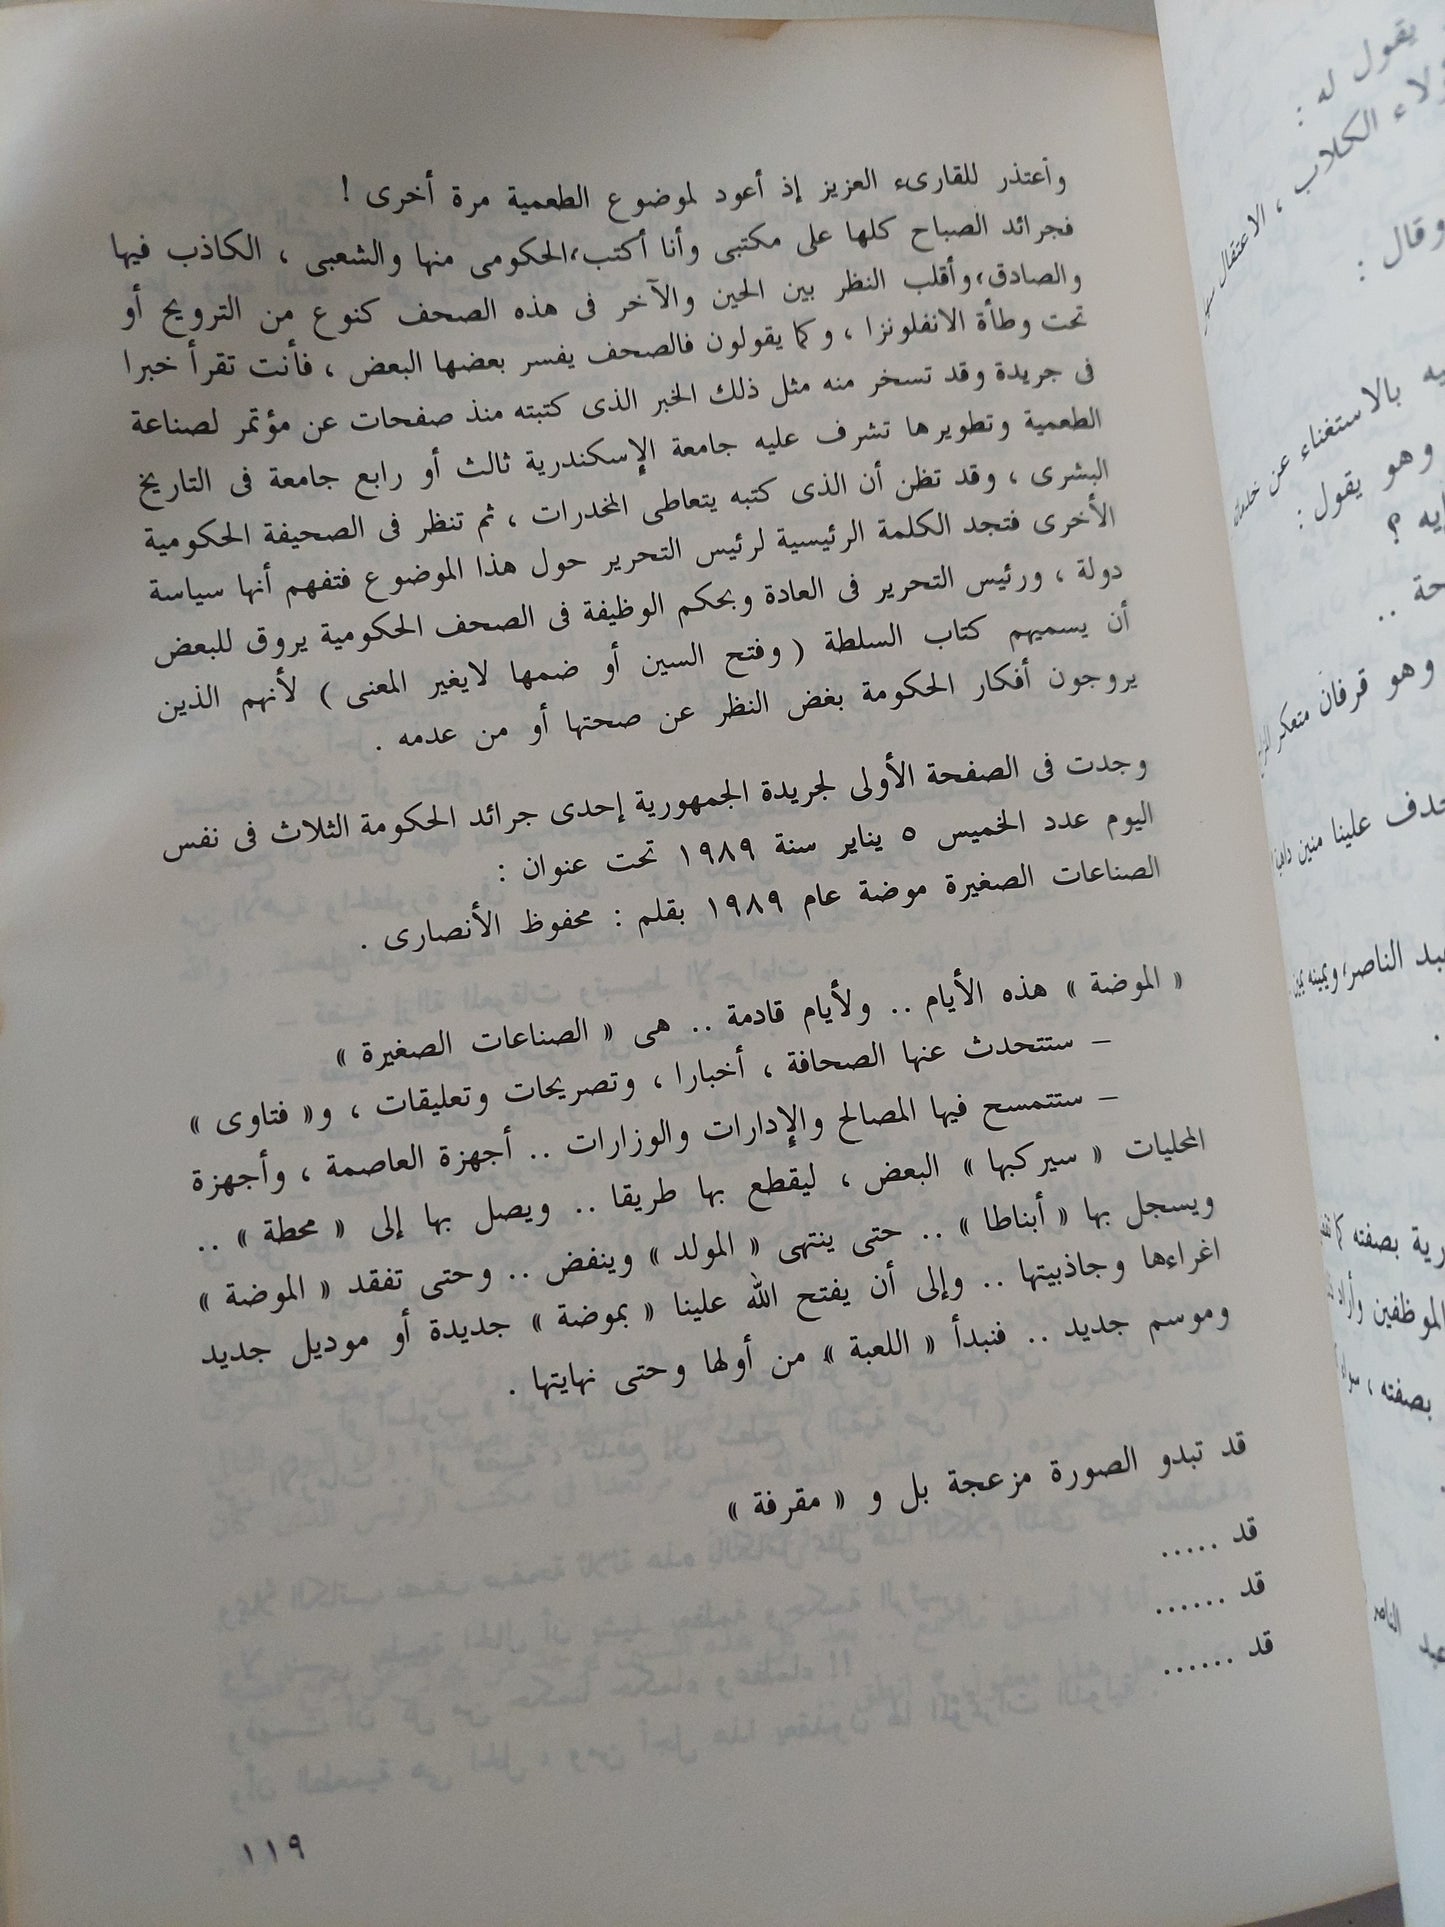 وأعتذر للقارىء العزيز إذ أعود لموضوع الطعمية مرة أخرى !
فجرائد الصباح كلها على مكتبى وأنا أكتب،الحكومى منها والشعبى ، الكاذب فيها
والصادق،وأقلب النظر بين الحين والآخر فى هذه الصحف كنوع من الترويح أو
تحت وطأة الانفلونزا ، وكما يقولون فالصحف يفسر بعضها البعض ، فأنت تقرأ خبرا
فى جريدة وقد تسخر منه مثل ذلك الخبر الذى كتبته منذ صفحات عن مؤتمر لصناعة
الطعمية وتطويرها تشرف عليه جامعة الإسكندرية ثالث أو رابع جامعة فى التاريخ
البشرى ، وقد تظن أن الذى كتبه يتعاطى المخدرات ، ثم تنظر فى الصحيفة الحكومية
الأخرى فتجد الكلمة الرئيسية لرئيس التحرير حول هذا الموضوع فتفهم أنها سياسة
دولة ، ورئيس التحرير فى العادة وبحكم الوظيفة فى الصحف الحكومية يروق للبعض
أن يسميهم كتاب السلطة ( وفتح السين أو ضمها لايغير المعنى ) لأنهم الذين
يروجون أفكار الحكومة بغض النظر عن صحتها أو من عدمه .
وجدت فى الصفحة الأولى لجريدة الجمهورية إحدى جرائد الحكومة الثلاث فى نفس
اليوم عدد الخميس ٥ يناير سنة ١٩٨٩ تحت عنوان :
الصناعات الصغيرة موضة عام ١٩٨٩ بقلم : محفوظ الأنصارى .
« الموضة » هذه الأيام .. ولأيام قادمة .. هى « الصناعات الصغيرة »
– ستتحدث عنها الصحافة ، أخبارا ، وتصريحات وتعليقات ، و« فتاوى »
– ستتمسح فيها المصالح والإدارات والوزارات .. أجهزة العاصمة ، وأجهزة
المحليات « سيركبها » البعض ، ليقطع بها طريقا .. ويصل بها إلى « محطة » ..
ويسجل بها « أبناطا » .. حتى ينتهى « المولد » وينفض .. وحتى تفقد « الموضة »
اغراءها وجاذبيتها .. وإلى أن يفتح الله علينا « بموضة » جديدة أو موديل جديد
وموسم جديد .. فنبدأ « اللعبة » من أولها وحتى نهايتها .
قد تبدو الصورة مزعجة بل و « مقرفة »
قد .....
قد ......
قد ......
١١٩
يقول له :
الكلاب ، الاعتقال
وقال :
بالاستغناء عن
وهو يقول :
ايه ؟
وهو قرفان متعكر
علينا منين
الناصر،
بصفته كما
الموظفين وأراد
بصفته ، سواء